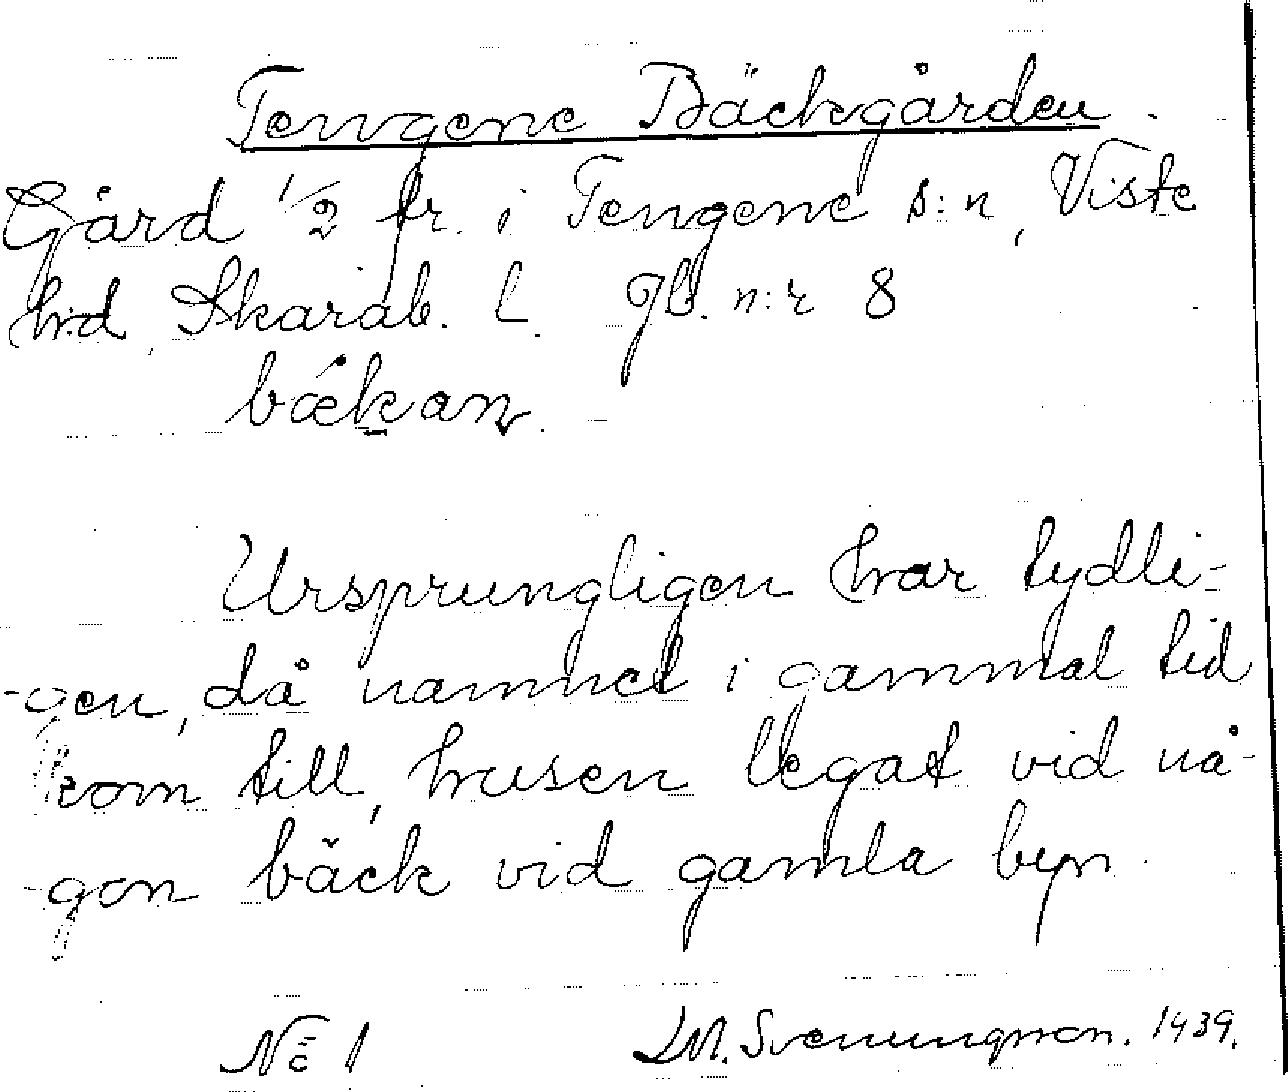 Tengene Bäckgården.
Gård 1/2 fr. i Tengene s:n, Viste
hd, Skarab. l. Jb. n:r 8
bækan.
Ursprungligen har tydli-
-gen, då namnet i gammal tid
kom till, husen legat vid nå-
-gon bäck vid gamla byn.
No 1 Svenungsson. 1939.